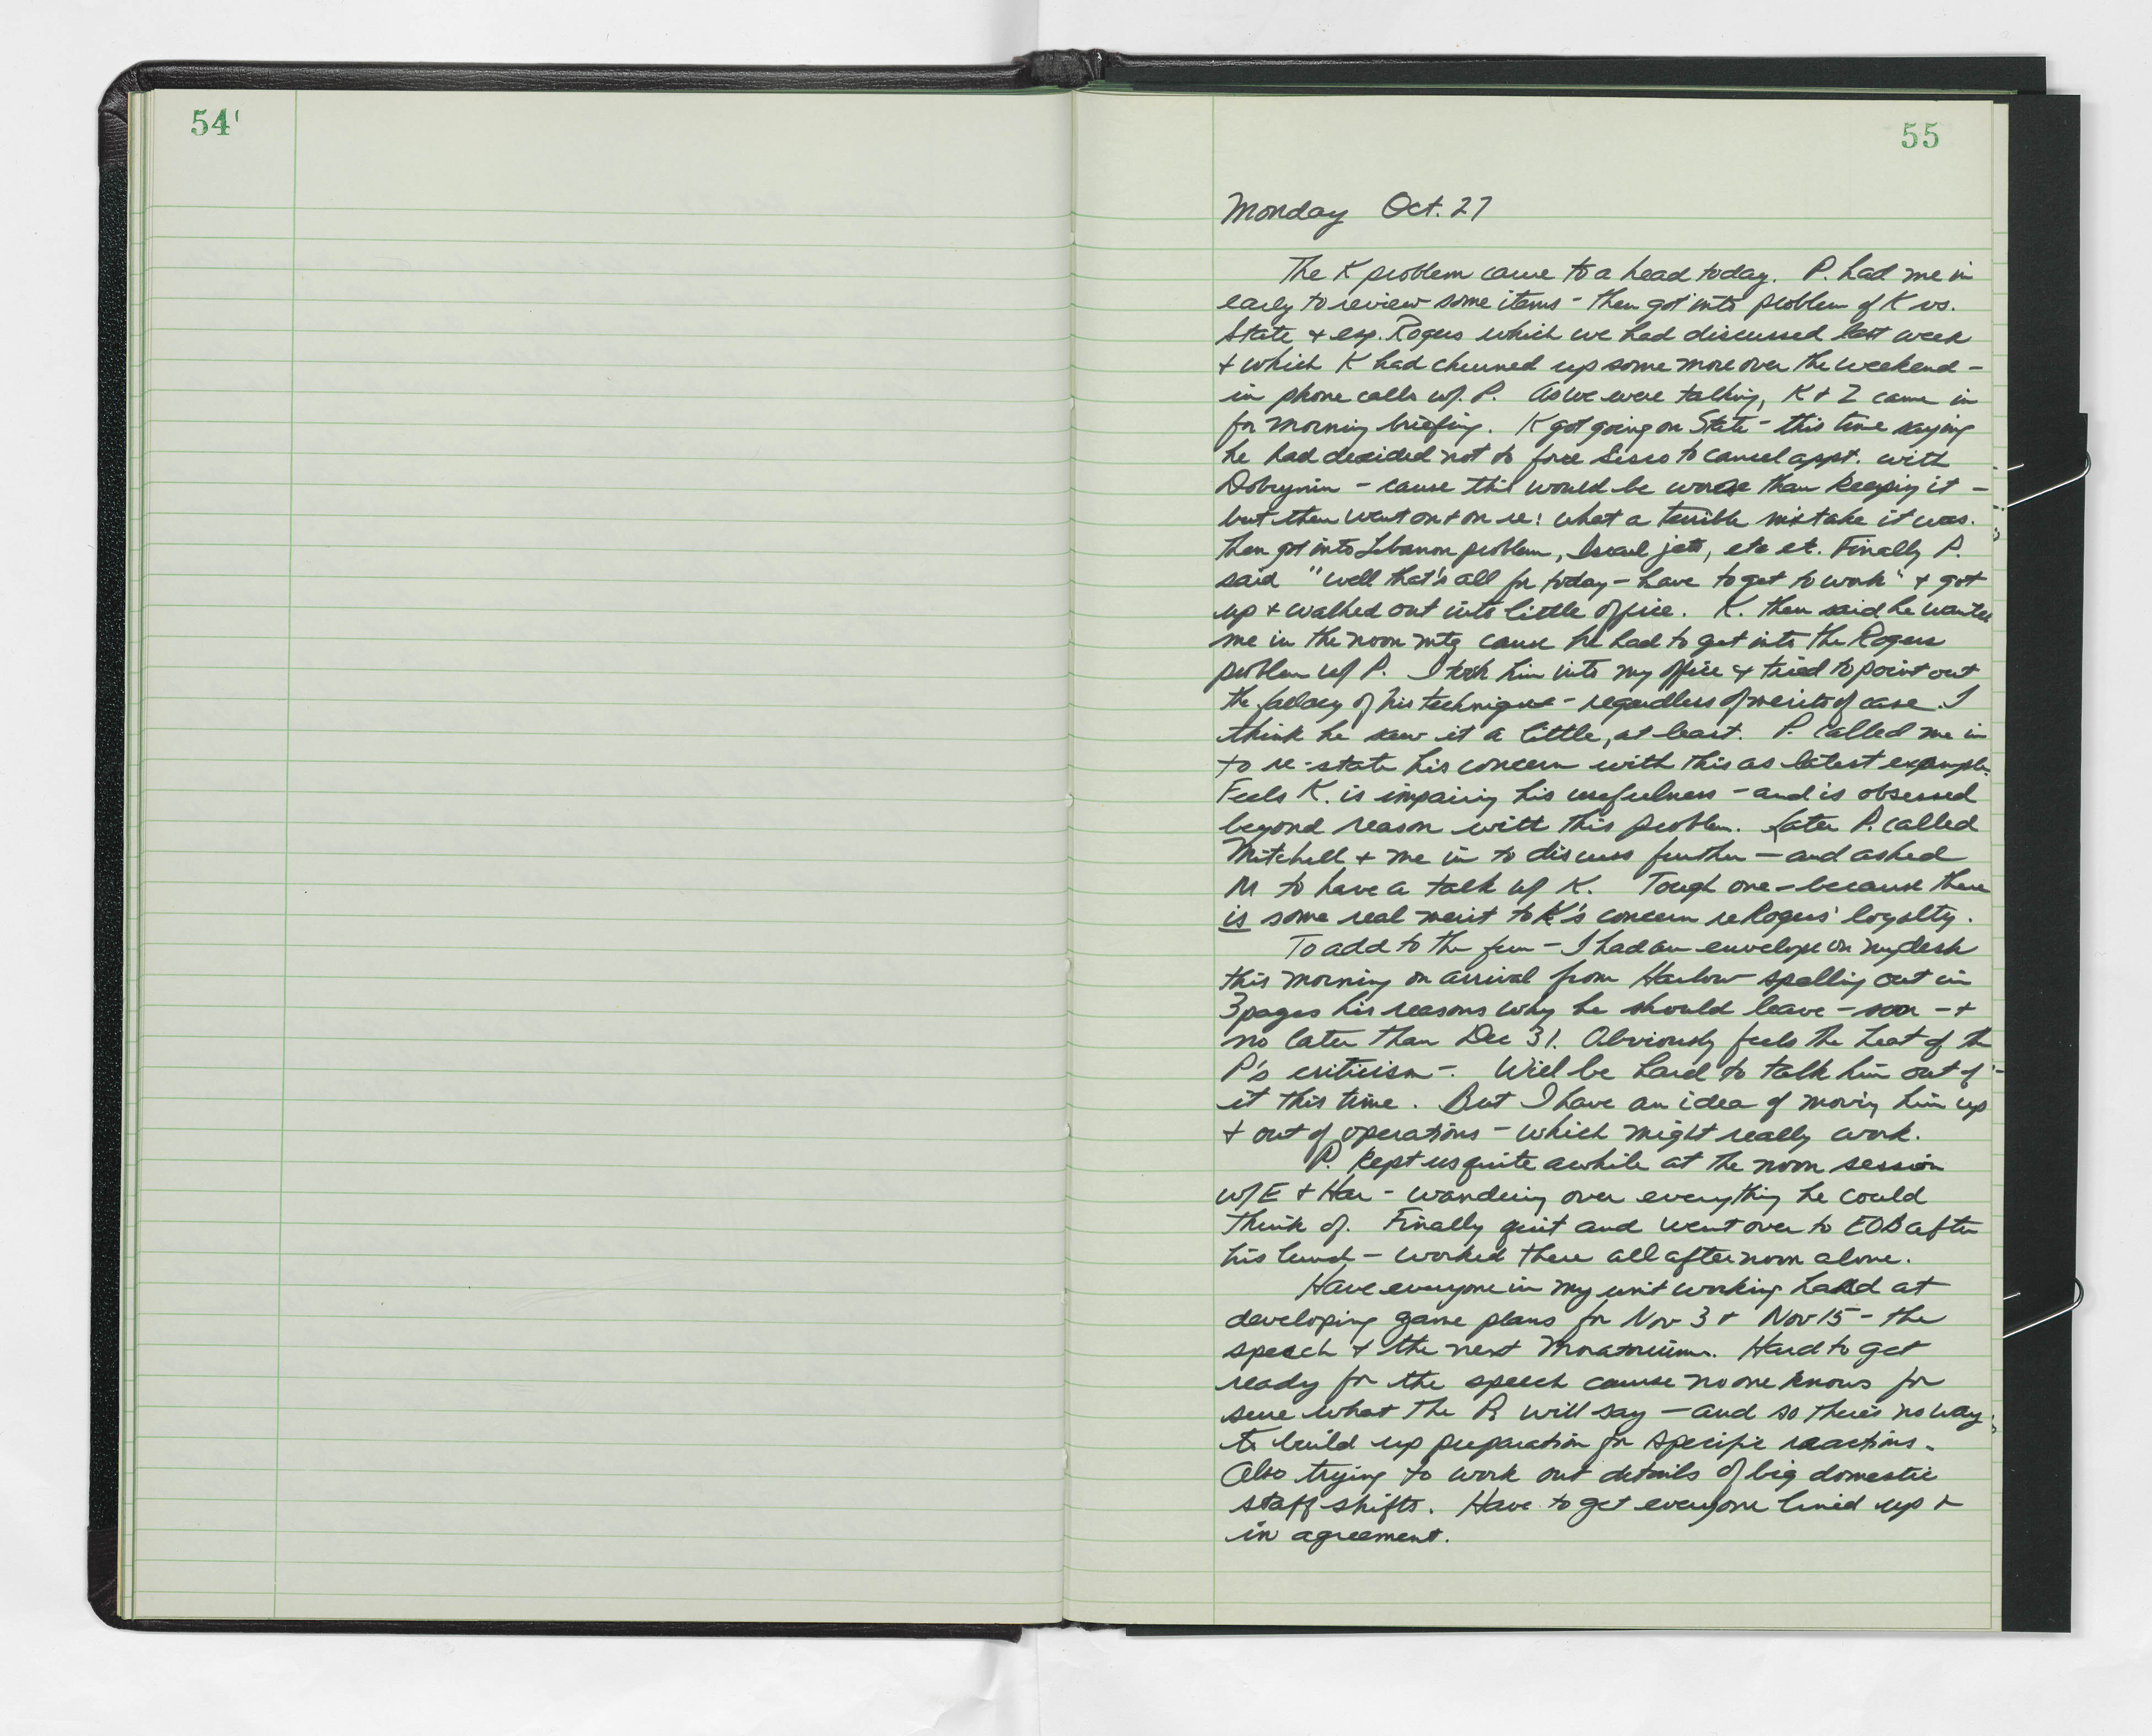 54
55
Monday Oct. 27
The K problem came to a head today. P. had me in
early to review some items - then got into problem of K vs.
State + esp. Rogers which we had discussed last week
+ which K had churned up some more over the weekend -
in phone calls w/. P. As we were talking, K + Z came in
for morning briefing. K got going on State - this time saying
he had decided not to force Sisco to cancel appt. with
Dobrynin - cause this would be worse than keeping it -
but then went on + on re: what a terrible mistake it was.
Then got into Lebanon problem, Israel jets, etc et. Finally P.
said "well that's all for today - have to get to work" + got
up + walked out into little office. K. then said he wanted
me in the noon mtg cause he had to get into the Rogers
problem w/ P. I took him into my office & tried to point out
the fallacy of his technique - regardless of merits of case. I
think he saw it a little, at least. P. called me in
to re-state his concern with this as latest example.
Feels K. is impairing his usefulness - and is obsessed
beyond reason with this problem. Later P. called
Mitchell + me in to discuss further - and asked
M to have a talk w/ K. Tough one - because there
is some real merit to K's concern re Rogers' loyalty.
To add to the fun - I had an envelope on my desk
this morning on arrival from Harlow spelling out in
3 pages his reasons why he should leave - soon - +
no later than Dec 31. Obviously feels the heat of the
P's criticism -. Will be hard to talk him out of
it this time. But I have an idea of moving him up
+ out of operations - which might really work.
P. kept us quite awhile at the noon session
w/ E + Har - wandering over everything he could
think of. Finally quit and went over to EOB after
his lunch - worked there all afternoon alone.
Have everyone in my unit working hard at
developing game plans for Nov 3 + Nov 15 - the
speech + the next Moratorium. Hard to get
ready for the speech cause no one knows for
sure what the P. will say - and so there's no way
to build up preparation for specific reactions.
Also trying to work out details of big domestic
staff shifts. Have to get everyone lined up +
in agreement.